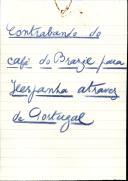 Contrabando de
café do Brazil para
Hespanha atravez
de Portugal